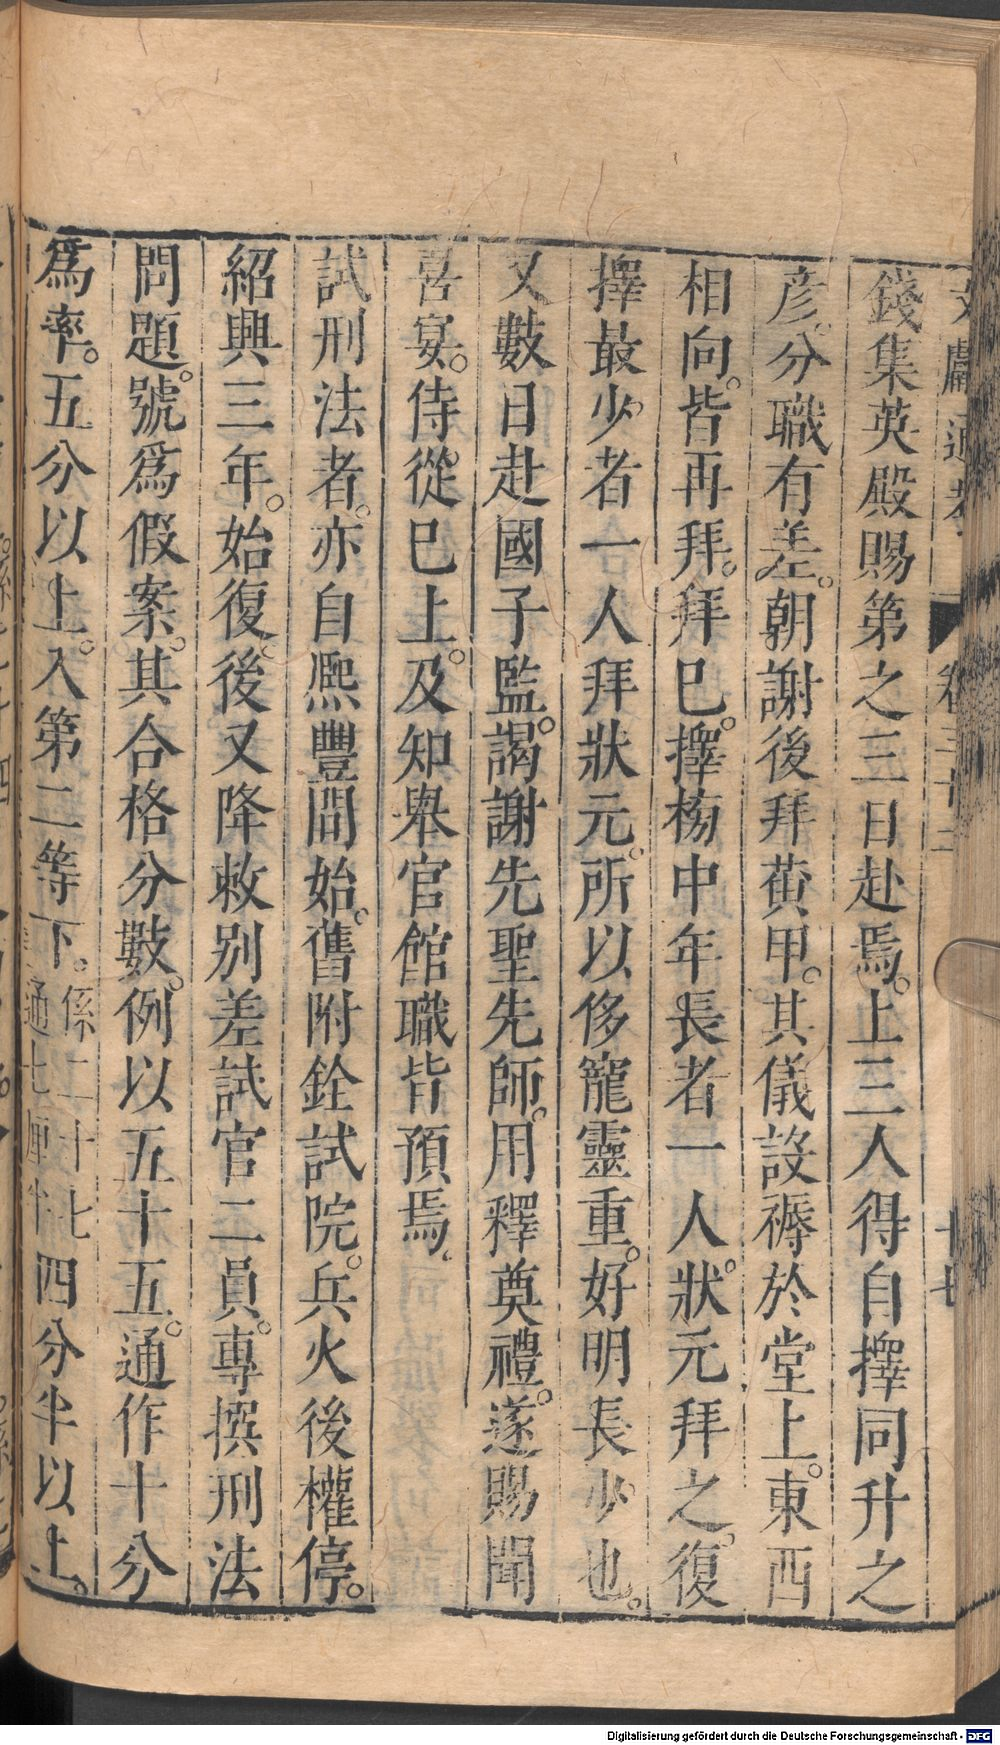 文獻通考 卷三十二 十七
錢集英殿賜第之三日赴焉。上三人得自擇同升之
彦。分職有差。朝謝後拜黄甲。其儀設褥於堂上。東西
相向。皆再拜。拜巳。擇榜中年長者一人。狀元拜之。復
擇最少者一人拜狀元。所以侈寵靈重。好明長少也。
又數日赴國子監。謁謝先聖先師。用釋奠禮。遂賜聞
喜宴。侍從巳上。及知舉官館職皆預焉。
試刑法者。亦自熙豐間始。舊附銓試院。兵火後權停。
紹興三年。始復。後又降敕别差試官二員。專撰刑法
問題。號爲假案。其合格分數。例以五十五。通作十分
爲率。五分以上。入第二等下。係二十七通七厘半四分半以上。
Digitalisierung gefördert durch die Deutsche Forschungsgemeinschaft - DFG